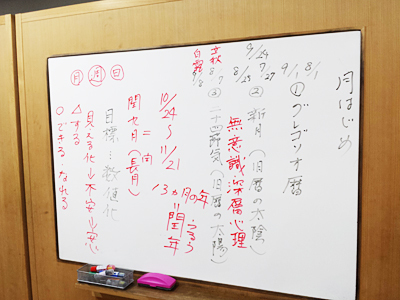 月はじめ
8/1
9/1
①グレゴリオ暦
7/27
8/25
9/24
②新月(旧暦の太陰)
無意識深層心理
③二十四節気(旧暦の太陽)
立秋 8/7
白露 9/8
13ヶ月の年
=閏年
うるう
10/24
〜
11/21
=閏
閏七月(長月)
目標…数値化
見える化→不安→
△する
○できる・なれる
月 週 日